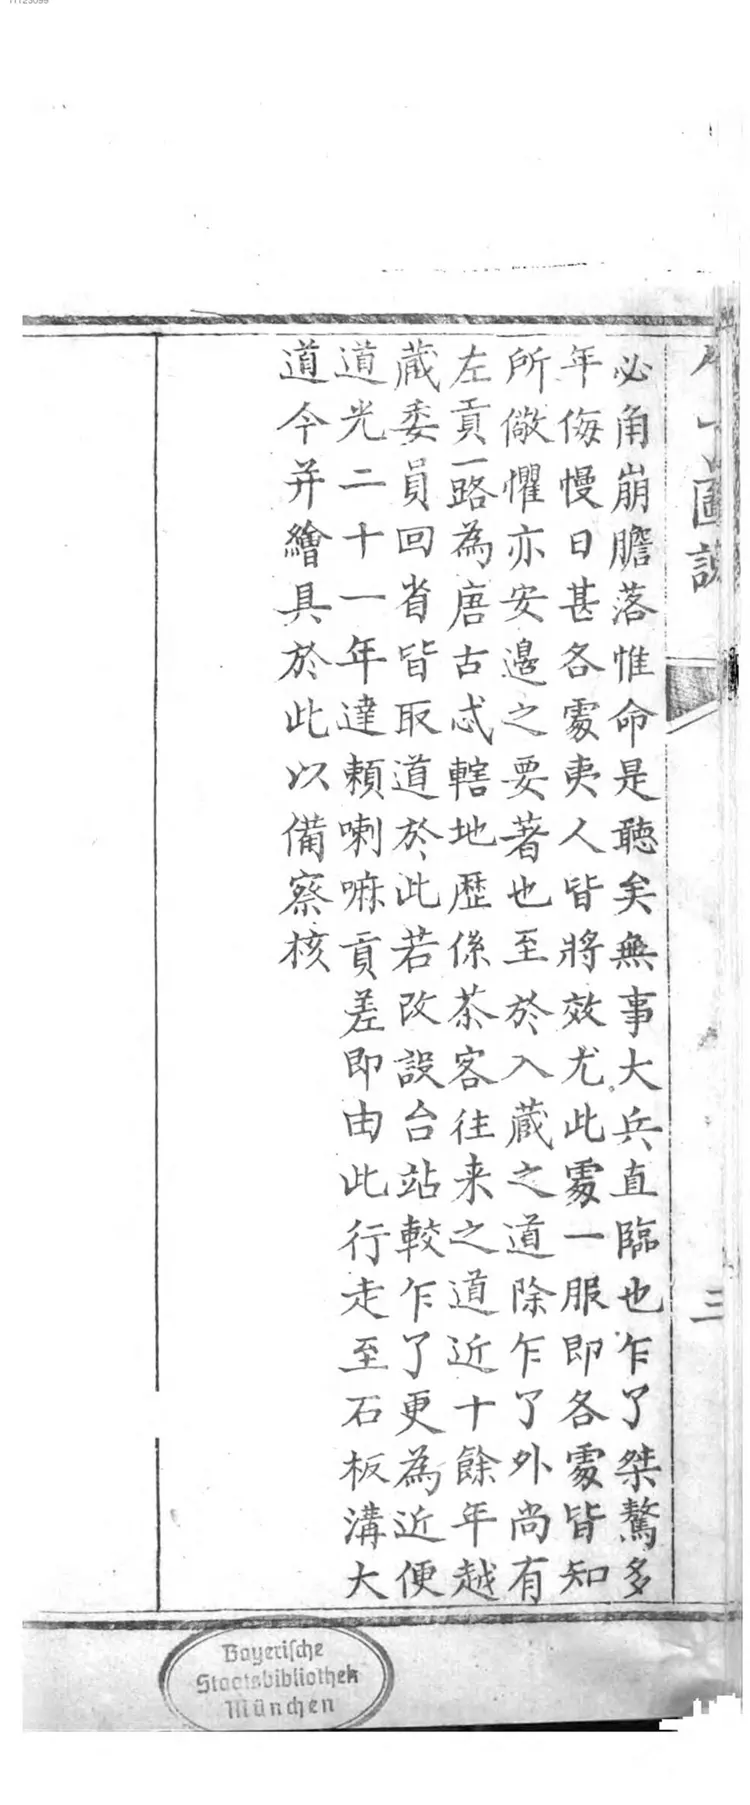 圖說
三
必角崩膽落惟命是聽矣無事大兵直臨也乍了桀驁多
年侮慢日甚各䖏夷人皆將效尤此䖏一服即各䖏皆知
所儆懼亦安邊之要著也至於入蔵之道除乍了外尚有
左貢一路為唐古忒轄地歴係茶客往来之道近十餘年越
蔵委員回省皆取道於此若改設台站較乍了更為近便
道光二十一年達頼喇嘛貢差即由此行走至石板溝大
道今并繪具於此以備察核
Bayerische
Staatsbibliothek
München